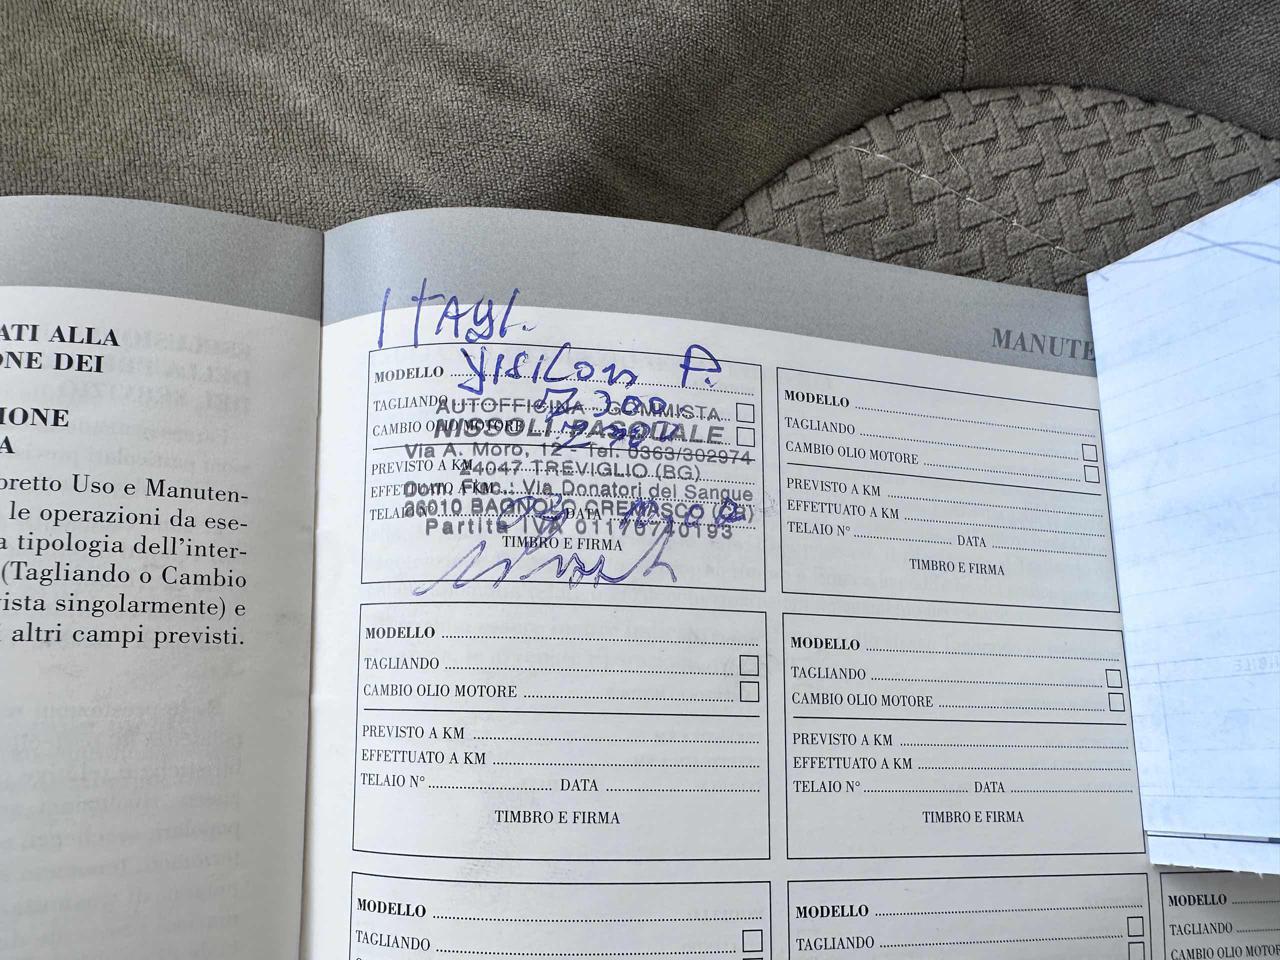 ATI ALLA
ONE DEI
IONE
A
oretto Uso e Manuten-
le operazioni da ese-
a tipologia dell'inter-
(Tagliando o Cambio
ista singolarmente) e
altri campi previsti.
MANUTE
1 TAgl.
MODELLO
TAGLIANDO
CAMBIO OLIO MOTORE
PREVISTO A KM
EFFETTUATO A KM
TELAIO N° DATA
TIMBRO E FIRMA
AUTOFFICINA - GOMMISTA
NISSOLI PASQUALE
Via A. Moro, 12 - Tel. 0363/302974
24047 TREVIGLIO (BG)
Dom. Fisc.: Via Donatori del Sangue
26010 BAGNOLO CREMASCO (CR)
Partita IVA 01170740193
MODELLO
TAGLIANDO
CAMBIO OLIO MOTORE
PREVISTO A KM
EFFETTUATO A KM
TELAIO N° DATA
TIMBRO E FIRMA
MODELLO
TAGLIANDO
CAMBIO OLIO MOTORE
PREVISTO A KM
EFFETTUATO A KM
TELAIO N° DATA
TIMBRO E FIRMA
MODELLO
TAGLIANDO
CAMBIO OLIO MOTORE
PREVISTO A KM
EFFETTUATO A KM
TELAIO N° DATA
TIMBRO E FIRMA
MODELLO
TAGLIANDO
MODELLO
TAGLIANDO
MODELLO
TAGLIANDO
CAMBIO OLIO MOTOR